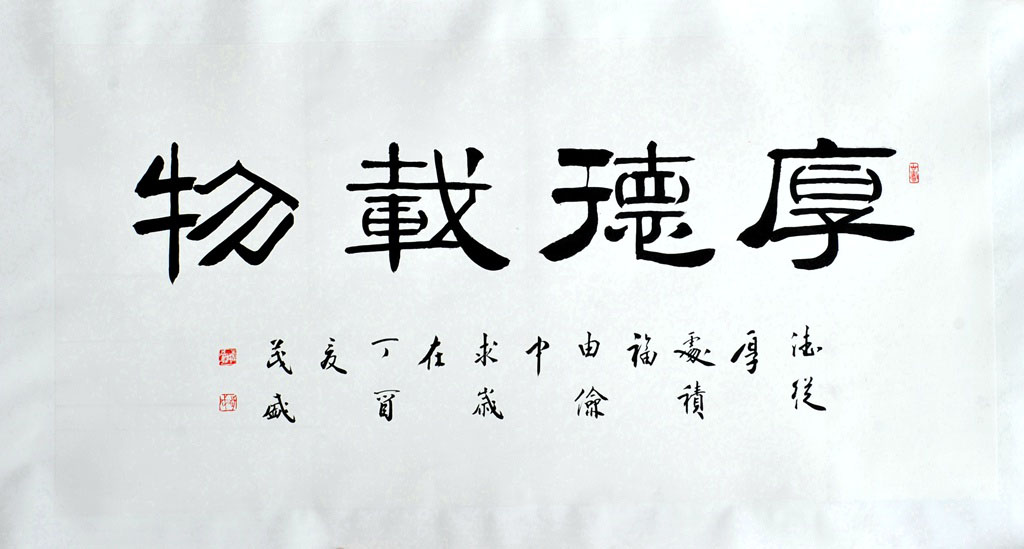 厚德載物
德從
厚
處積
福
由儉
中
求歲
在
丁酉
夏
茂盛